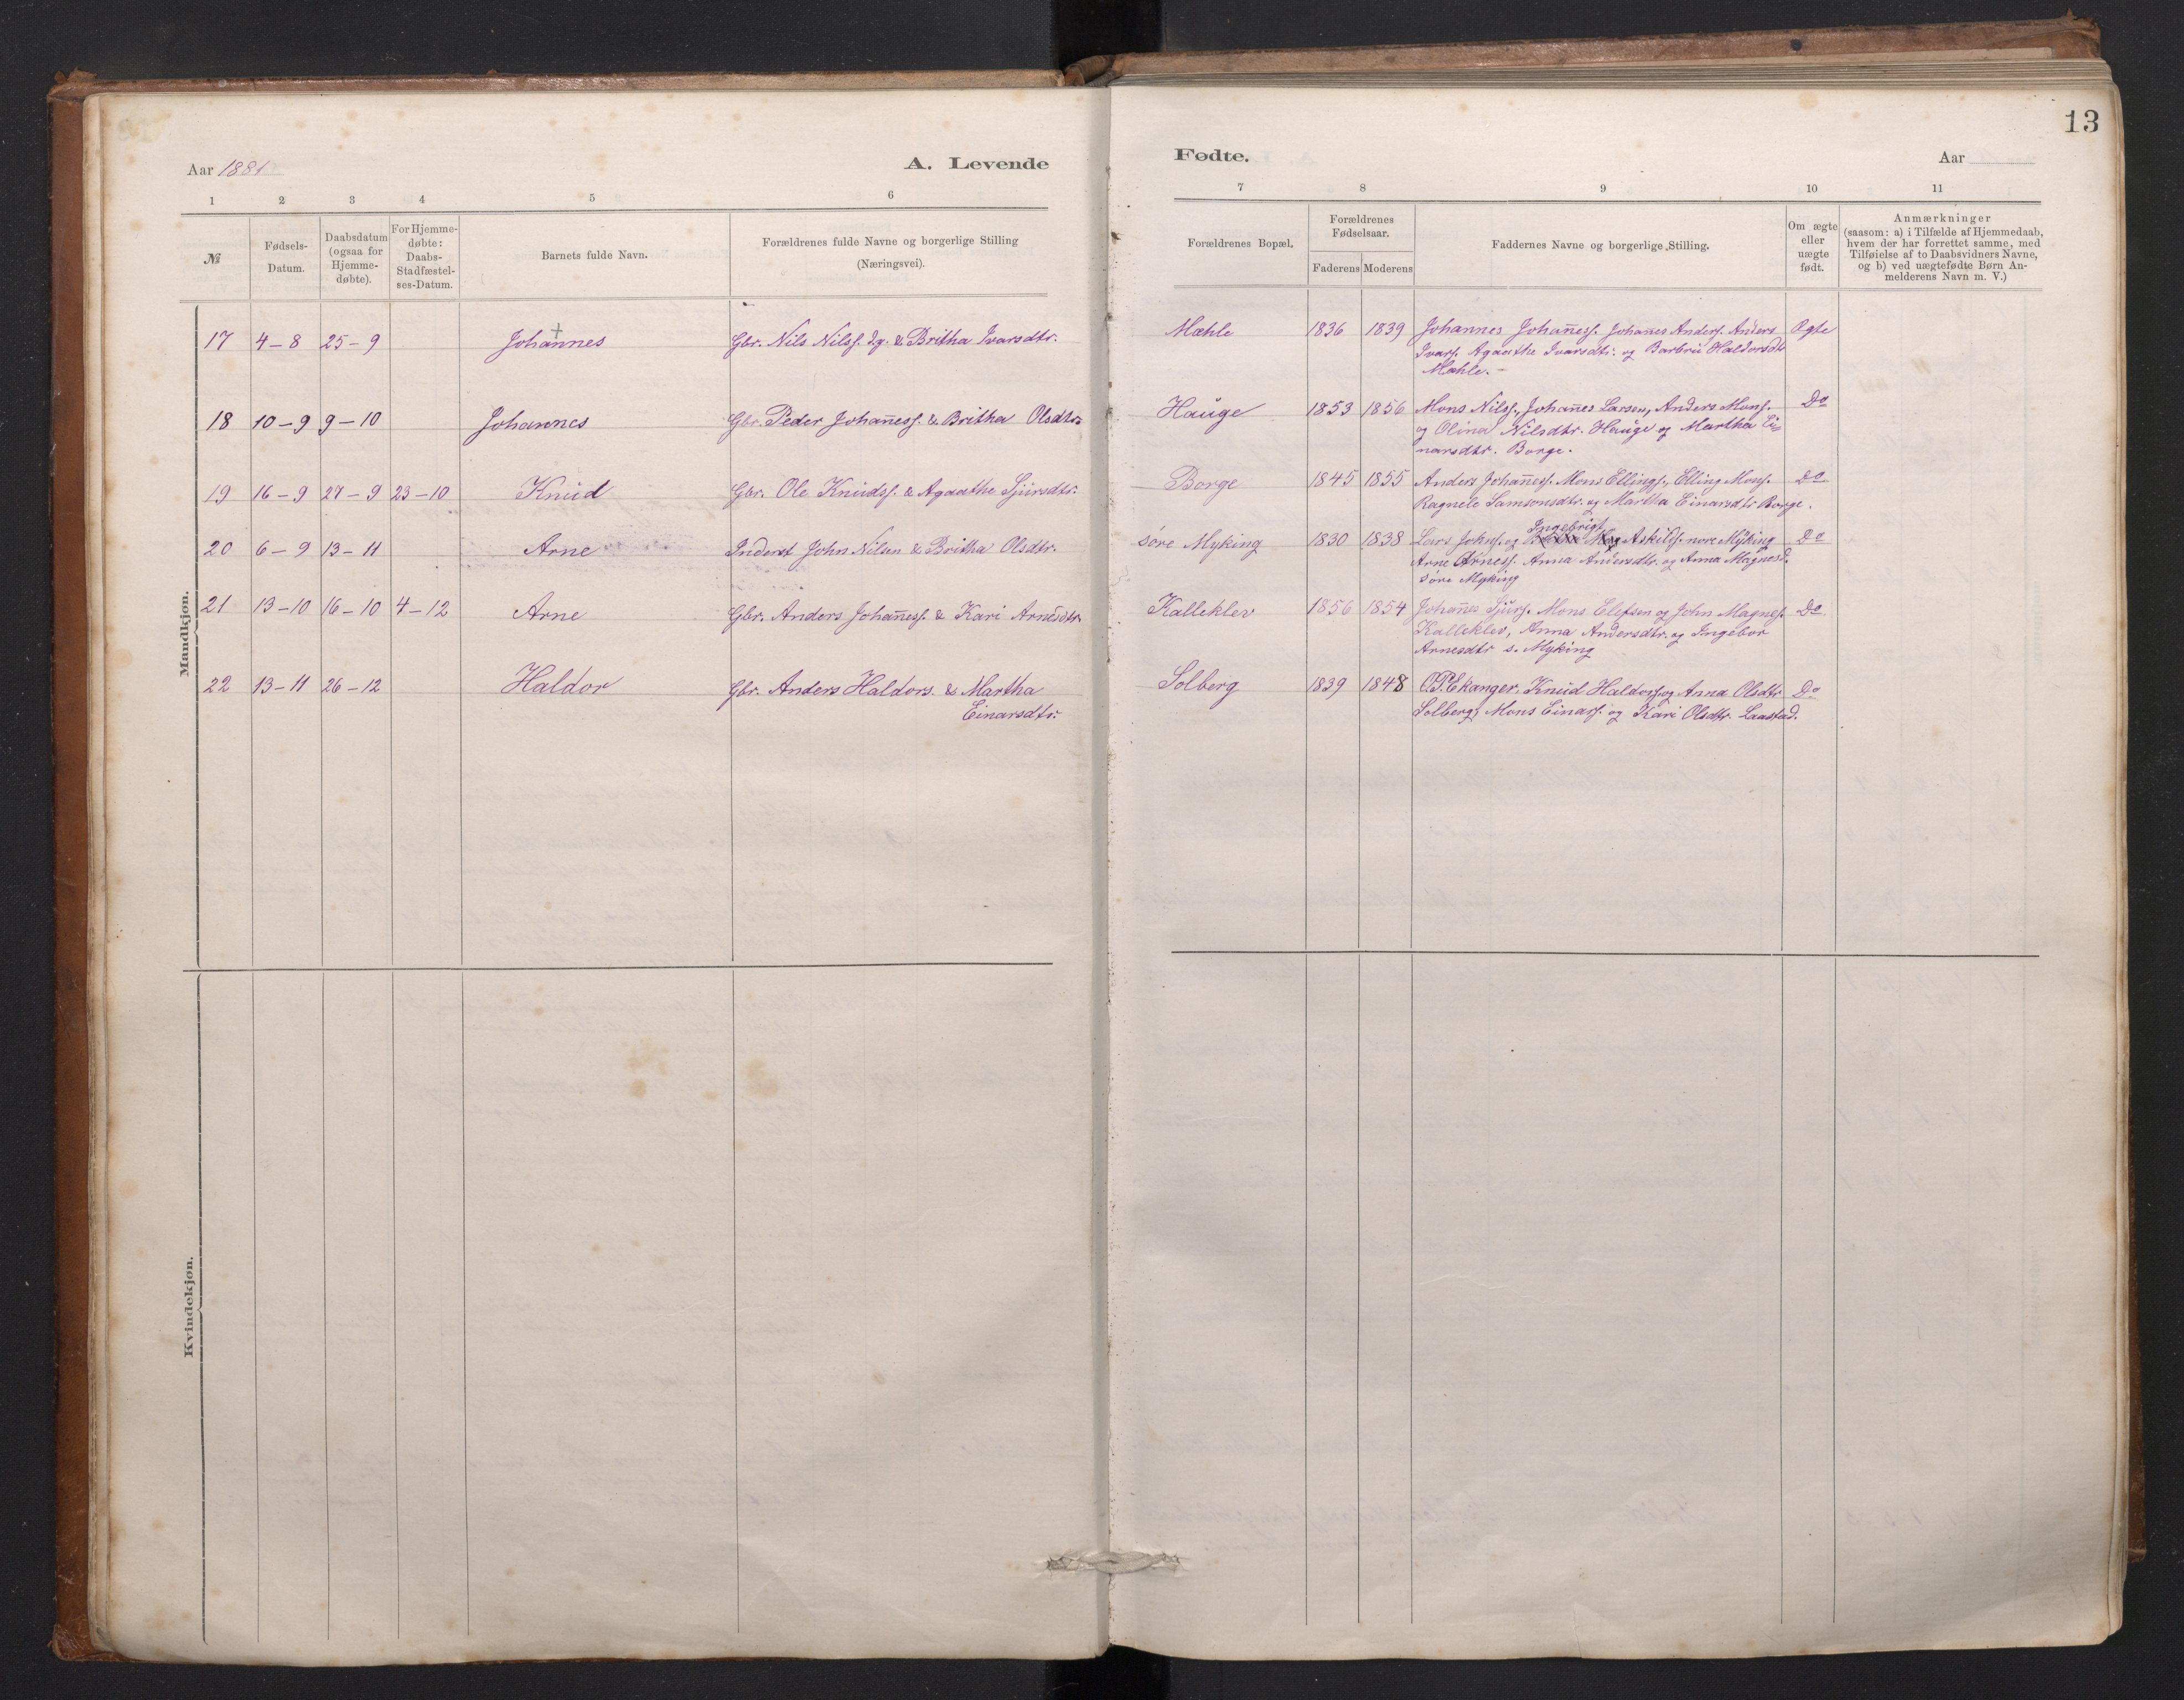 13
Aar 1881
A. Levende
Fødte.
Aar
1 2 3 4 5 6
7 8 9 10 11
№
Fødsels-
Datum.
Daabsdatum
(ogsaa for
Hjemme-
døbte).
For Hjemme-
døbte:
Daabs-
Stadfæstel-
ses-Datum.
Barnets fulde Navn.
Forældrenes fulde Navne og borgerlige Stilling
(Næringsvei).
Forældrenes Bopæl.
Forældrenes
Fødselsaar.
Faderens Moderens
Faddernes Navne og borgerlige Stilling.
Om ægte
eller
uægte
født.
Anmærkninger
(saasom: a) i Tilfælde af Hjemmedaab,
hvem der har forrettet samme, med
Tilføielse af to Daabsvidners Navne,
og b) ved uægtefødte Børn An-
melderens Navn m. V.)
Mandkjøn.
17 4-8 25-9 Johannes + Gbr. Nils Nilss. d.y. & Britha Ivarsdtr. Mæhle 1836 1839 Johannes Johan̄ess. Johan̄es Anders. Anders Ægte
Ivars. Agaethe Ivarsdtr. og Barbru Haldorsdtr
Mæhle.
18 10-9 9-10 Johannes Gbr. Peder Johan̄ess. & Britha Olsdtr. Hauge 1853 1856 Mons Nilss., Johan̄es Larsen, Anders Mons. Do
og Olina Nilsdtr. Hauge og Martha Ei=
narsdtr. Borge.
19 16-9 27-9 23-10 Knud Gbr. Ole Knudss. & Agaathe Sjursdtr. Borge 1845 1855 Anders Johan̄ess. Mons Ellings., Elling Mons. Do
Ragnele Samsonsdtr. og Martha Einarsdtr Borge.
20 6-9 13-11 Arne Inderst John Nilsen & Britha Olsdtr. søre Myking 1830 1838 Lars Johns. og Ingebrigt Askilds. nore Myking Do
Arne Arness. Anna Andersdtr. og Anna Magnesd.
søre Myking
21 13-10 16-10 4-12 Arne Gbr. Anders Johan̄ess. & Kari Arnesdtr. Kalleklev 1856 1854 Johan̄es Sjurs. Mons Elefsen og John Magness. Do
Kalleklev, Anna Andersdtr. og Ingebor
Arnesdtr s. Myking
22 13-11 26-12 Haldor Gbr. Anders Haldors. & Martha Solberg 1839 1848 O.P. Ekanger, Knud Haldors. og Anna Olsdtr Do
Einarsdtr. Solberg, Mons Einars. og Kari Olsdtr. Laastad.
Kvindekjøn.